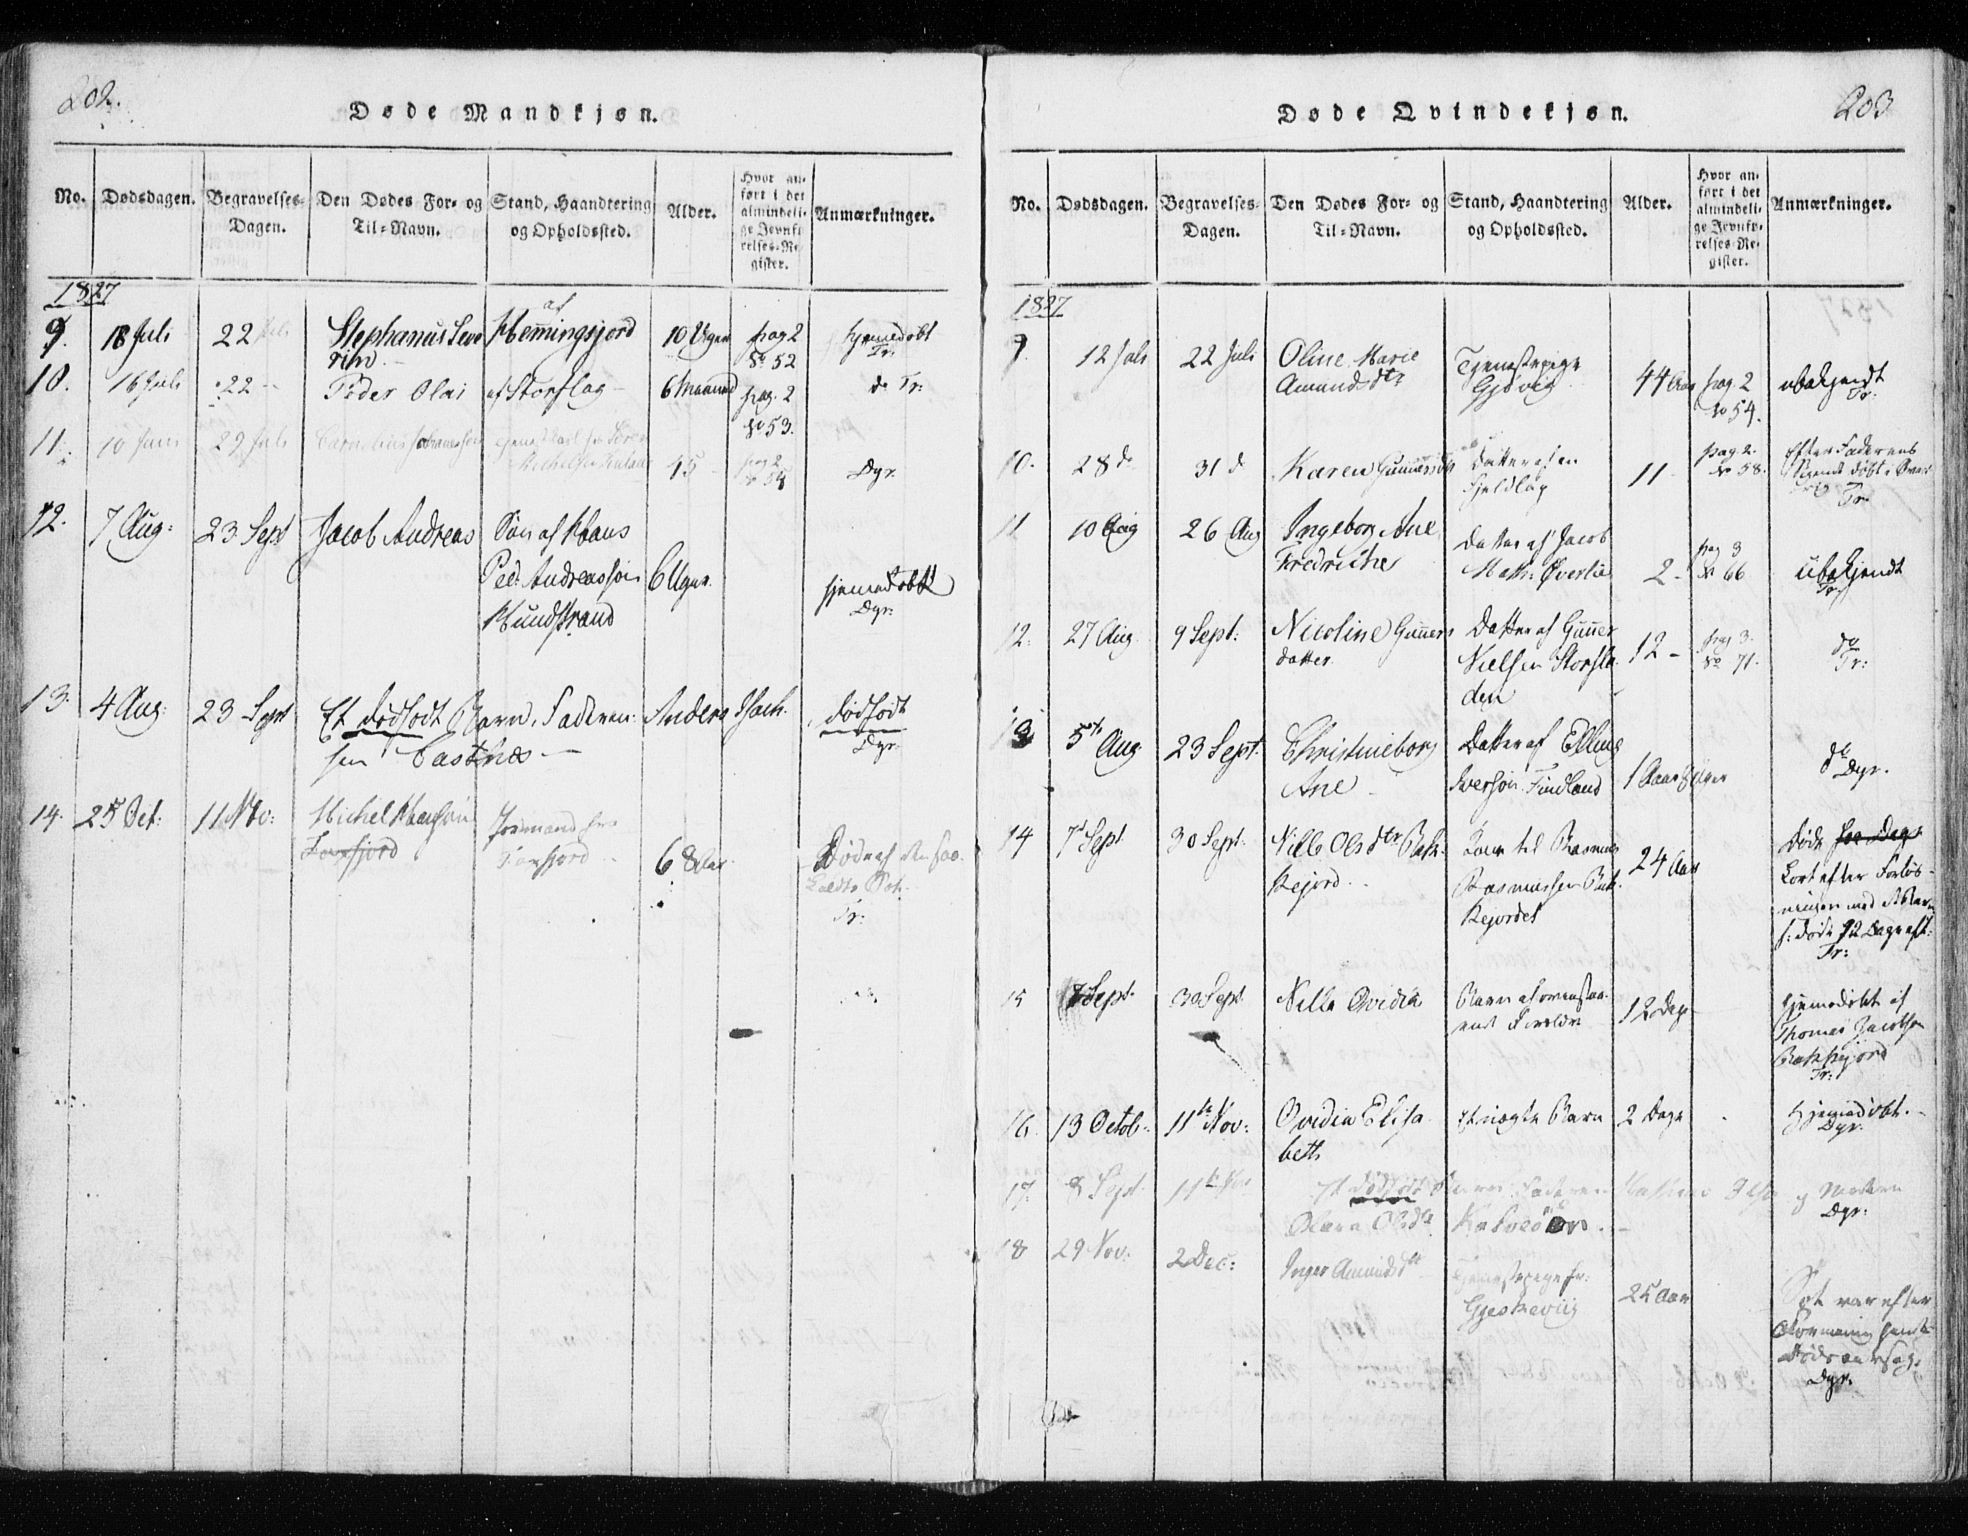 202.
Døde Mandkjøn.
No. Dødsdagen. Begravelses-Dagen. Den Dødes For- og Til-Navn. Stand, Haandtering og Opholdssted. Alder. Hvor anført i det almindelige Jevnførelses-Register. Anmærkninger.
1827
9. 18 Juli 22 Juli Stephanus Seve
rin af Hemmingsjord 10 Uger pag 2
No 52 hjemedøbt
Tr:
10. 16 Juli 22 - Peder Olai af Storslag 6 Maaned pag. 2
No 53. do Tr:
11. 10 Juni 29 Juli Cornelius Johannesen
45 pag 2
Dyr.
12. 7 Aug: 23 Sept Jacob Andreas Søn af Hans
Ped: Andreassøn
Kundstrand 6 Uger. hjemedøbt
Dyr:
13. 4 Aug: 23 Sept Et dødfødt Barn, Faderen: Anders Isach
sen Castnes - dødfødt
Dyr:
14. 25 Oct: 11 Nov: Michel Hansen
68 Aar. Døde af den saa
kaldte Sot.
Tr:
203
Døde Qvindekjøn.
No. Dødsdagen. Begravelses-Dagen. Den Dødes For- og Til-Navn. Stand, Haandtering og Opholdssted. Alder. Hvor anført i det almindelige Jevnførelses-Register. Anmærkninger.
1827
9. 12 Juli 22 Juli Oline Marie
Amunds dtr Tjenestepige
Gjøvig 44 Aar pag. 2
No 54. ubekjendt
Tr:
10. 28 do 31 do Karen Gunnersdtr Datter af en
Fjeldlap 11 - pag. 2.
No 58. Efter Faderens
Tr:
11 10 Aug 26 Aug Ingeborg Ane
Fredriche Datter af Jacob
Math: Øverlie 2 - pag 3
No 66 ubekjendt
Tr:
12. 27 Aug 9 Sept: Nicoline Gunners
datter Datter af Gunner
Nielsen Storsla
den 12 - pag 3.
No 71. do
Tr:
13 5te Aug 23 Sept. Christineborg
Ane - Datter af Elling
Iversøn Finland 1 Aar do
Dyr.
14 7de Sept 30 Sept. Nille Olsdtr Bak
kejord. Kone til Rasmus
Rasmussen Bak
kejordet 24 Aar Døde
kort efter Forløs
ningen med et Barn
s: døde 12 Dage eft:
Tr:
15 8 Sept. 30 Sept Nille Ovidia Barn af ovenstaa
ende Forældre 12 Dage hjemedøbt af
Thomas Jacobsen
Bakkejord
Tr:
16. 13 Octob: 11te Nov: Ovidia Elisa
beth Et uægte Barn 2 Dage hjemedøbt. -
Dyr:
17. 8 Sept. 11te Nov Et dødfødt Barn Faderen
og Moderen
Dyr:
18 29 Nov: 2 Dec: Inger Amundsdtr Tjenestepige fr:
Gjeskeviig 25 Aar Sot var efter
Formening hendes
Dødsaarsag.
Dyr: